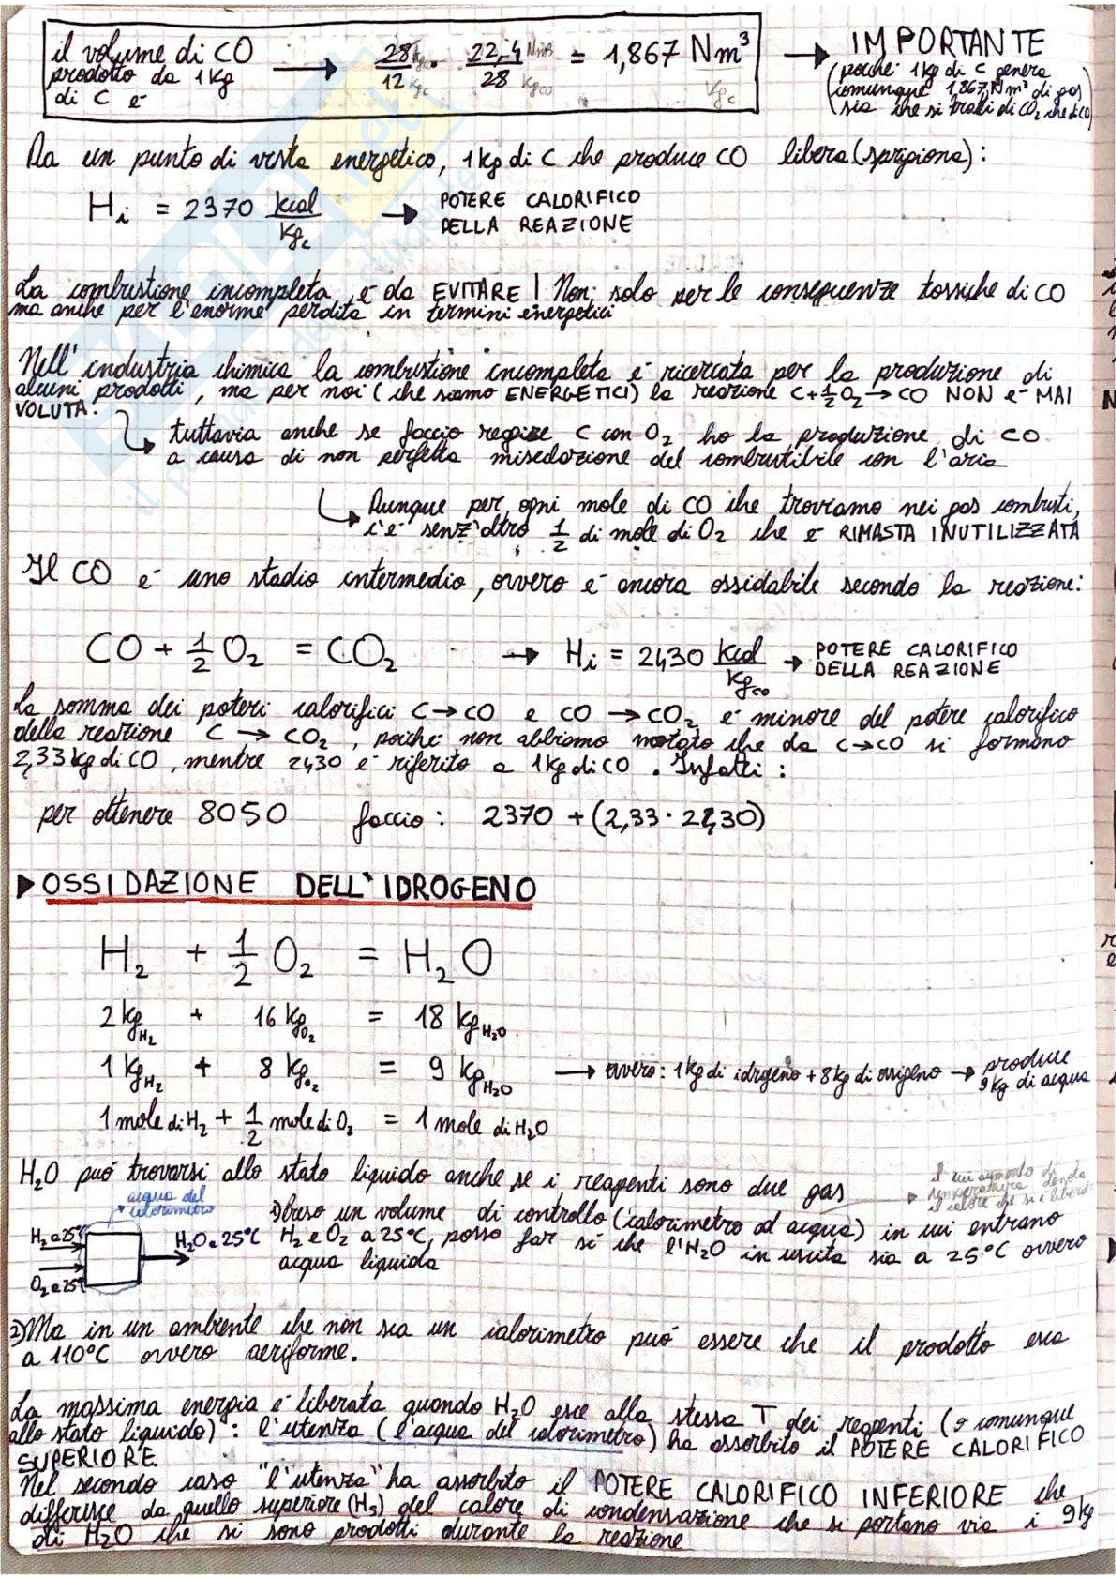 il volume di CO
prodotto da 1kg
di C è
→ 28 kgCO / 12 kgC · 22,4 Nm3 / 28 kgCO = 1,867 Nm³ / kgC
→ IMPORTANTE
(poiché 1kg di C genera
comunque 1,867 Nm³ di gas
sia che si tratti di CO2 che di CO)
Da un punto di vista energetico, 1kg di C che produce CO libera (sprigiona):
Hi = 2370 kcal/kgC → POTERE CALORIFICO
DELLA REAZIONE
La combustione incompleta è da EVITARE! Non solo per le conseguenze tossiche di CO
ma anche per l'enorme perdita in termini energetici
Nell'industria chimica la combustione incompleta è ricercata per la produzione di
alcuni prodotti, ma per noi (che siamo ENERGETICI) la reazione C+½O2→CO NON è MAI
VOLUTA.
↳ tuttavia anche se faccio reagire C con O2 ho la produzione di CO
a causa di non perfetta miscelazione del combustibile con l'aria
↳ Dunque per ogni mole di CO che troviamo nei gas combusti,
c'è senz'altro ½ di mole di O2 che è RIMASTA INUTILIZZATA
Il CO è uno stadio intermedio, ovvero è ancora ossidabile secondo la reazione:
CO + ½ O2 = CO2 → Hi = 2430 kcal/kgCO → POTERE CALORIFICO
DELLA REAZIONE
La somma dei poteri calorifici C→CO e CO→CO2 è minore del potere calorifico
della reazione C → CO2, poiché non abbiamo notato che da C→CO si formano
2,33kg di CO, mentre 2430 è riferito a 1kg di CO. Infatti:
per ottenere 8050 faccio: 2370 + (2,33 · 2430)
▶ OSSIDAZIONE DELL'IDROGENO
H2 + ½ O2 = H2O
2 kgH2 + 16 kgO2 = 18 kgH2O
1 kgH2 + 8 kgO2 = 9 kgH2O → ovvero: 1kg di idrogeno + 8kg di ossigeno → produce
9kg di acqua
1 mole di H2 + ½ mole di O2 = 1 mole di H2O
H2O può trovarsi allo stato liquido anche se i reagenti sono due gas
acqua del
calorimetro
H2 a 25°C
O2 a 25°C
H2O a 25°C
1) Preso un volume di controllo (calorimetro ad acqua) in cui entrano
H2 e O2 a 25°C, posso far sì che l'H2O in uscita sia a 25°C ovvero
acqua liquida
2) Ma in un ambiente che non sia un calorimetro può essere che il prodotto esca
a 110°C ovvero aeriforme.
La massima energia è liberata quando H2O esce alla stessa T dei reagenti (o comunque
allo stato liquido): l'utenza (l'acqua del calorimetro) ha assorbito il POTERE CALORIFICO
SUPERIORE
Nel secondo caso "l'utenza" ha assorbito il POTERE CALORIFICO INFERIORE che
differisce da quello superiore (Hs) del calore di condensazione che si portano via i 9kg
di H2O che si sono prodotti durante la reazione